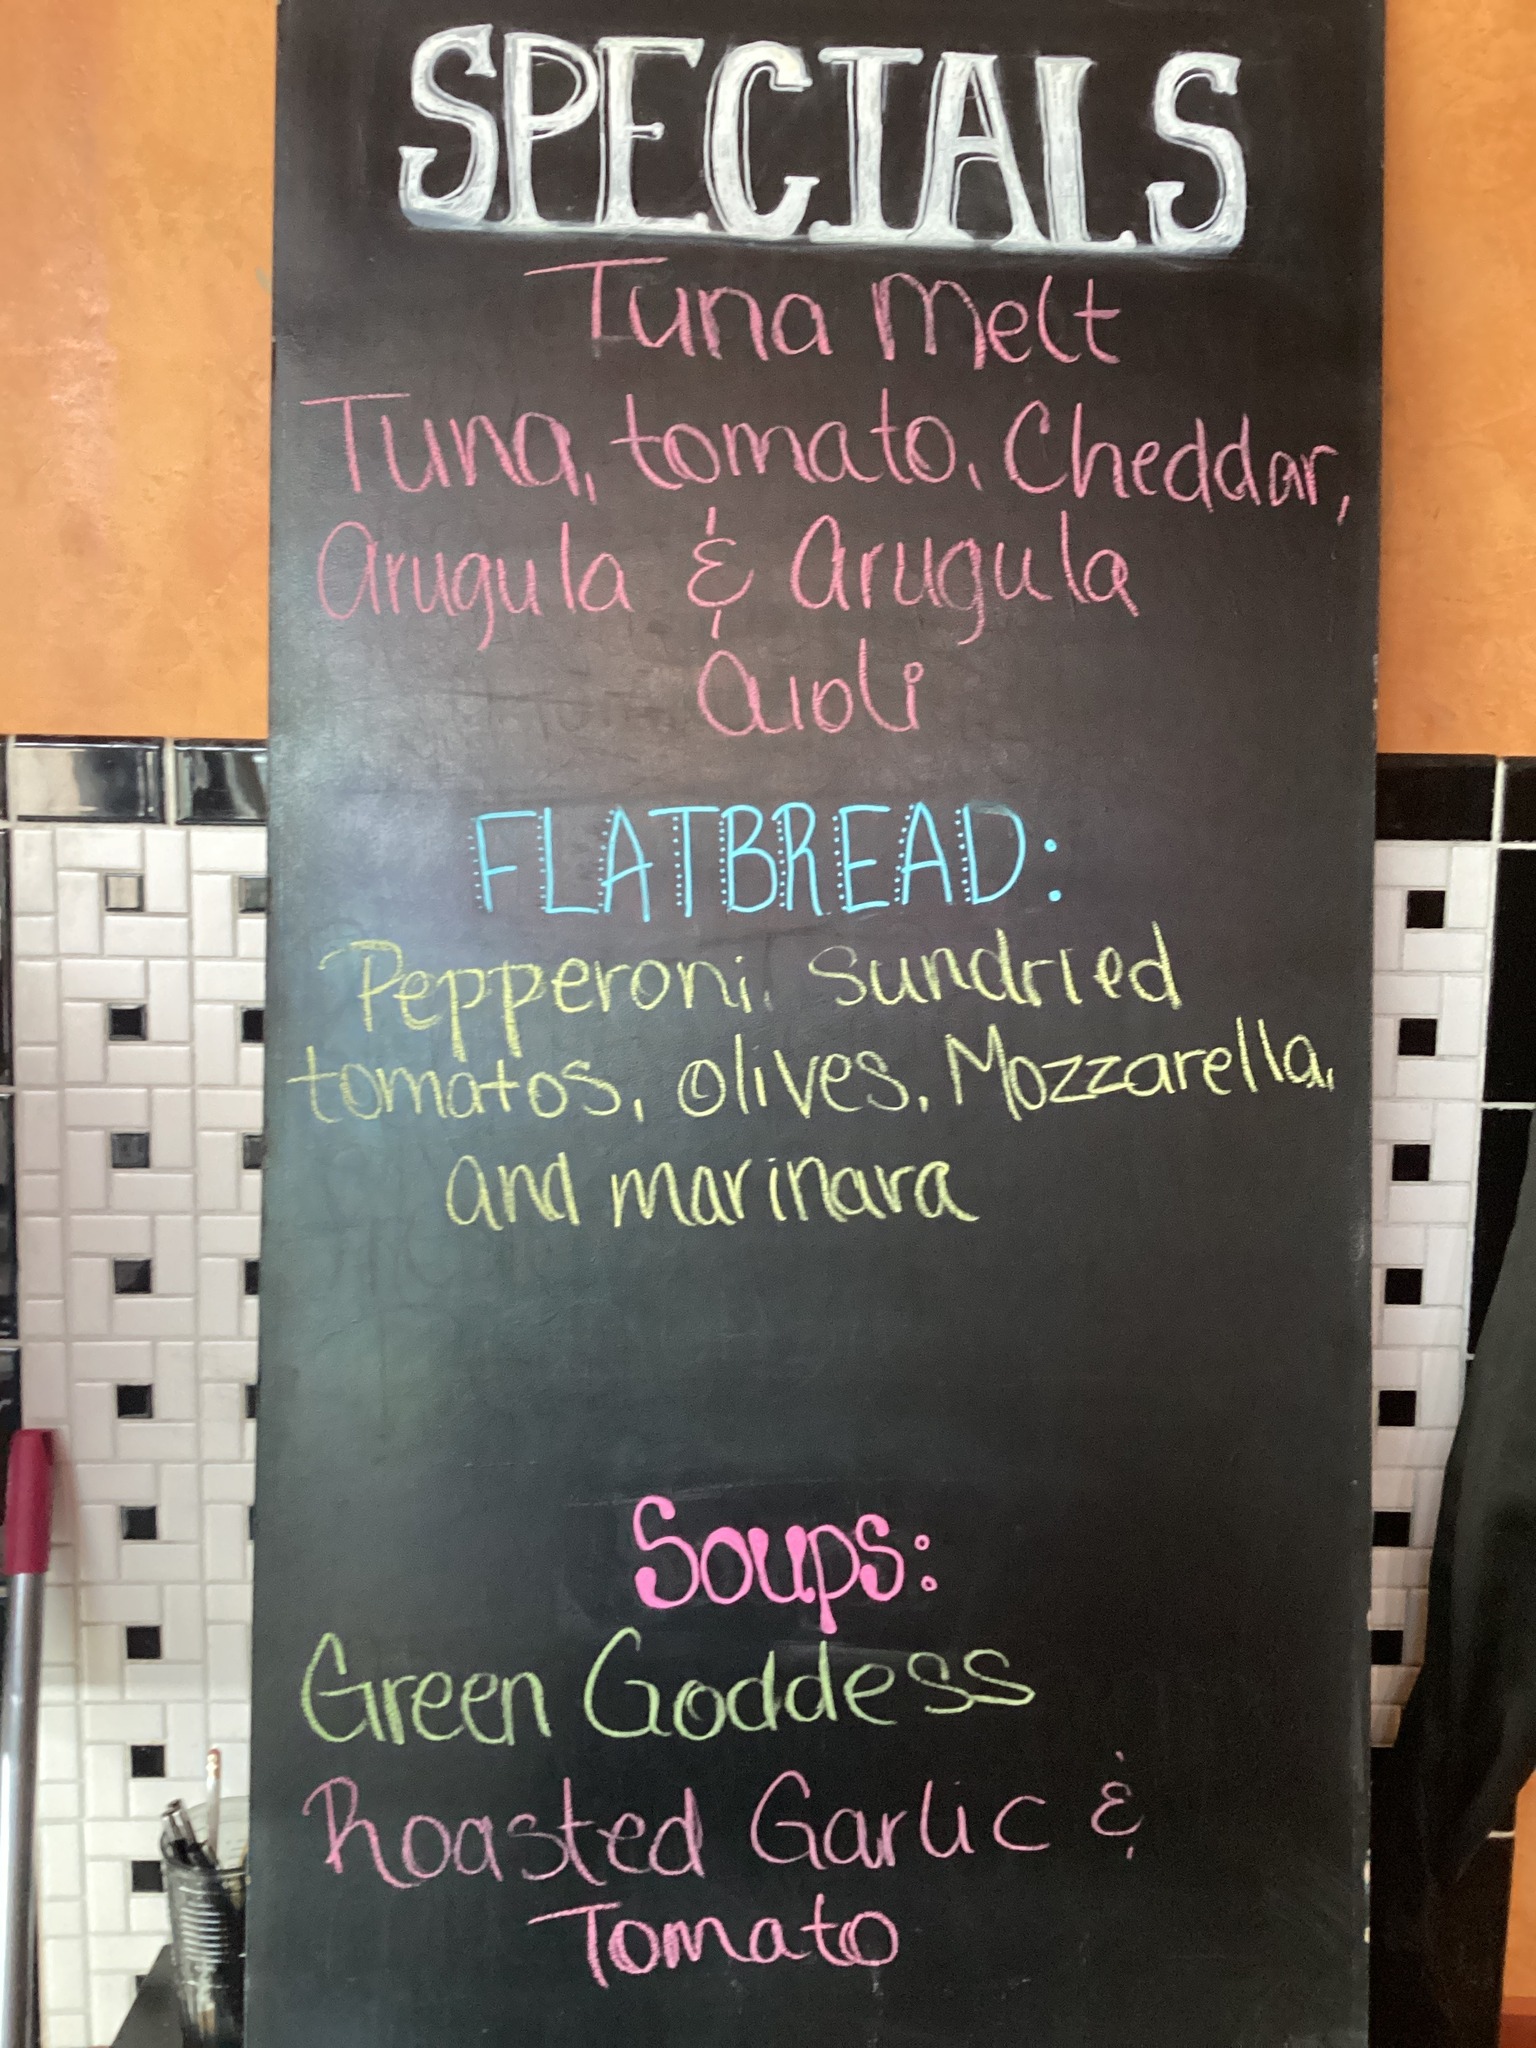 SPECIALS
Tuna Melt
Tuna, tomato, Cheddar,
Arugula & Arugula
Aioli
FLATBREAD:
Pepperoni, Sundried
tomatos, olives, Mozzarella,
and marinara
Soups:
Green Goddess
Roasted Garlic &
Tomato